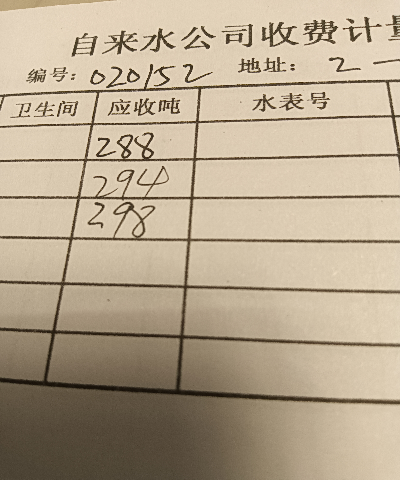 自来水公司收费计量
编号: 020152 地址: 2 一
卫生间 应收吨 水表号
288
294
298